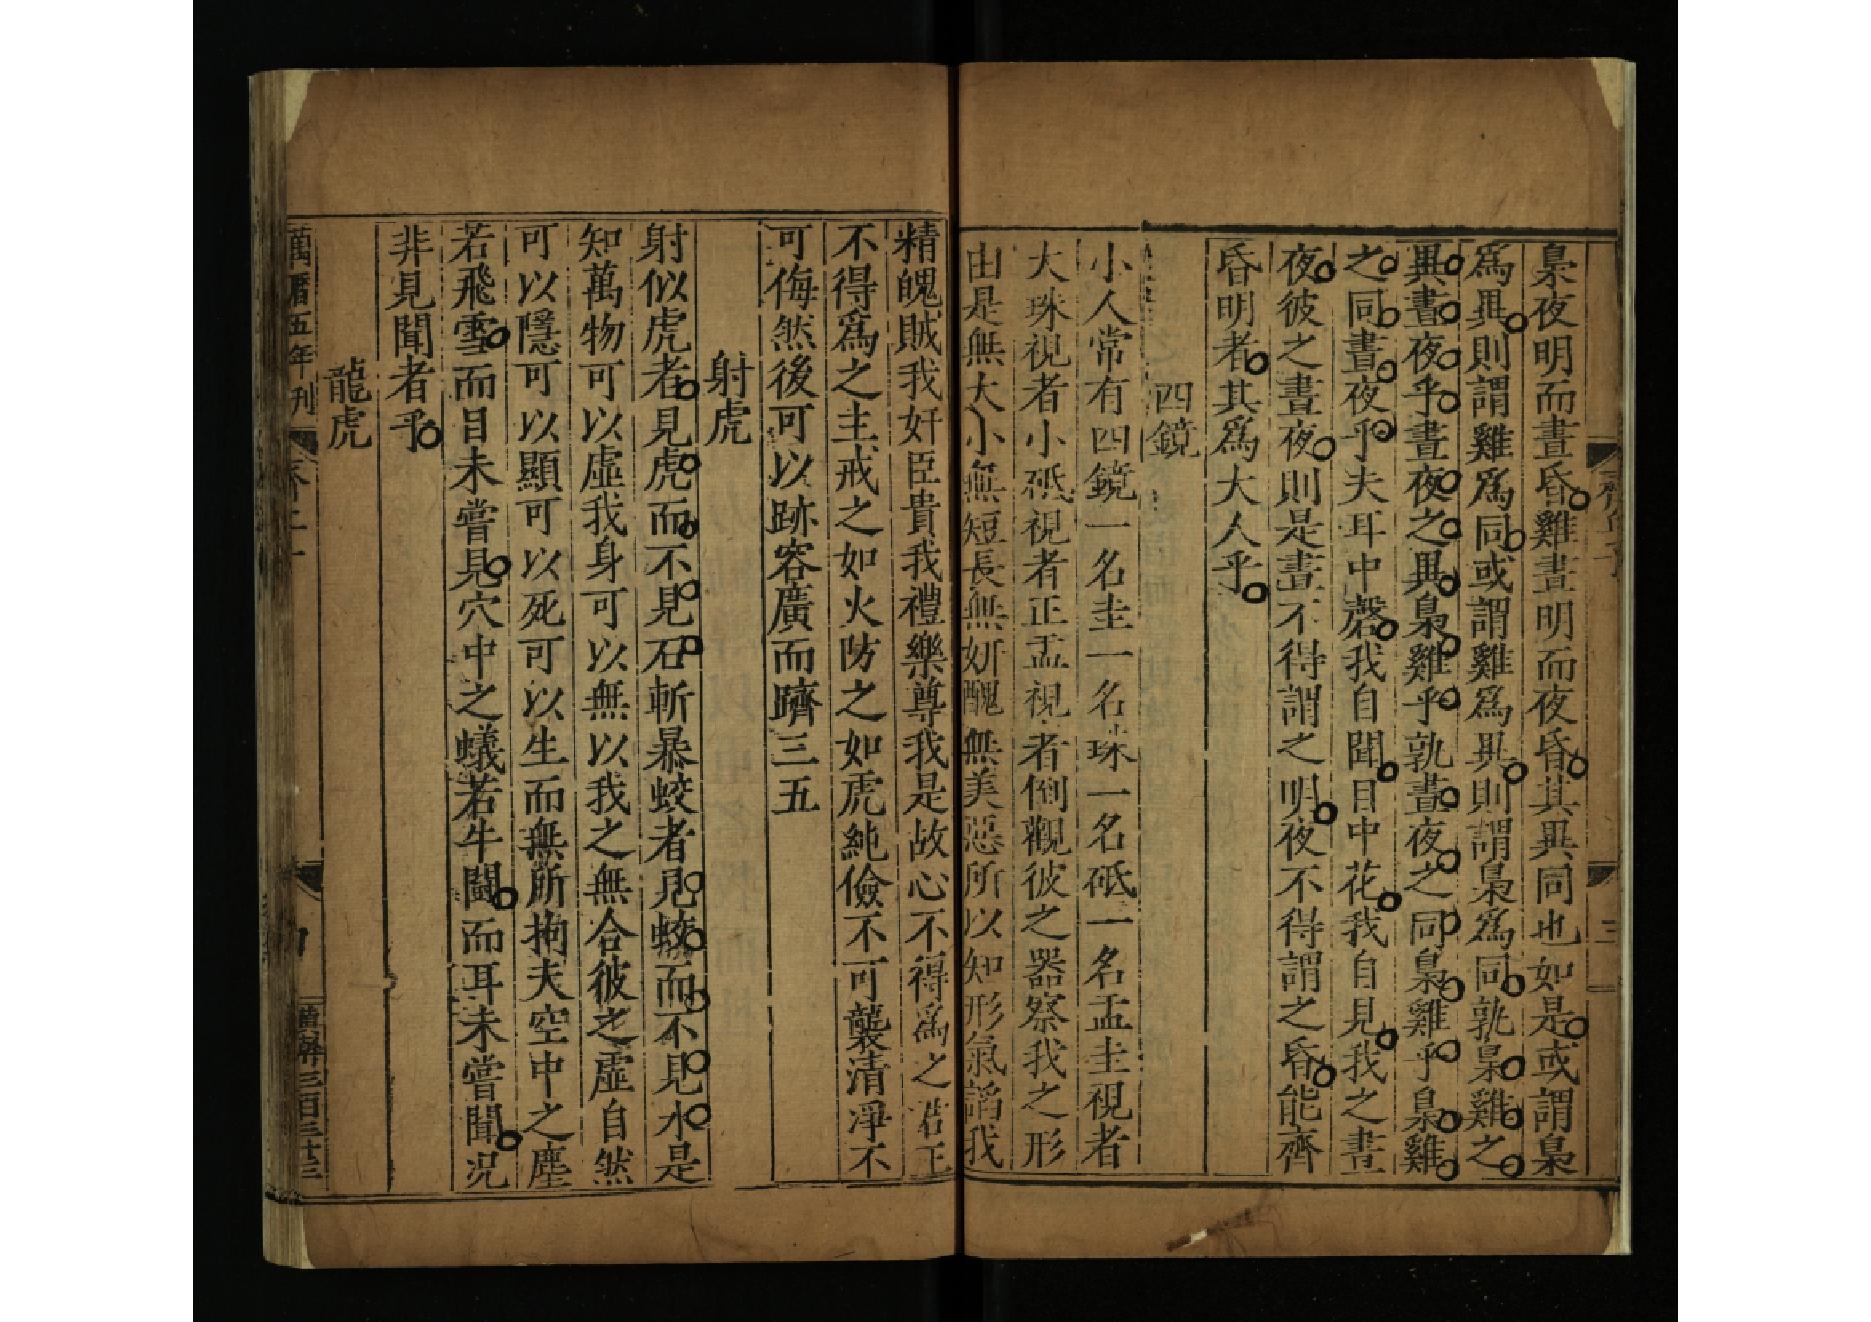 梟夜明而晝昏雞晝明而夜昏其異同也如是或謂梟
爲異則謂雞爲同或謂雞爲異則謂梟爲同孰梟雞之
異晝夜乎晝夜之異梟雞乎孰晝夜之同梟雞乎梟雞
之同晝夜乎夫耳中磬我自聞目中花我自見我之晝
夜彼之晝夜則是晝不得謂之明夜不得謂之昏能齊
昏明者其爲大人乎
四鏡
小人常有四鏡一名圭一名珠一名砥一名盂圭視者
大珠視者小砥視者正盂視者倒觀彼之器察我之形
由是無大小無短長無妍醜無美惡所以知形氣謟我
精魄賊我奸臣貴我禮樂尊我是故心不得爲之君王
不得爲之主戒之如火防之如虎純儉不可襲清淨不
可侮然後可以跡容廣而躋三五
射虎
射似虎者見虎而不見石斬暴蛟者見蛟而不見水是
知萬物可以虛我身可以無以我之無合彼之虛自然
可以隱可以顯可以死可以生而無所拘夫空中之塵
若飛雪而目未嘗見穴中之蟻若牛鬪而耳未嘗聞况
非見聞者乎
龍虎
萬曆五年刊
三百三十三